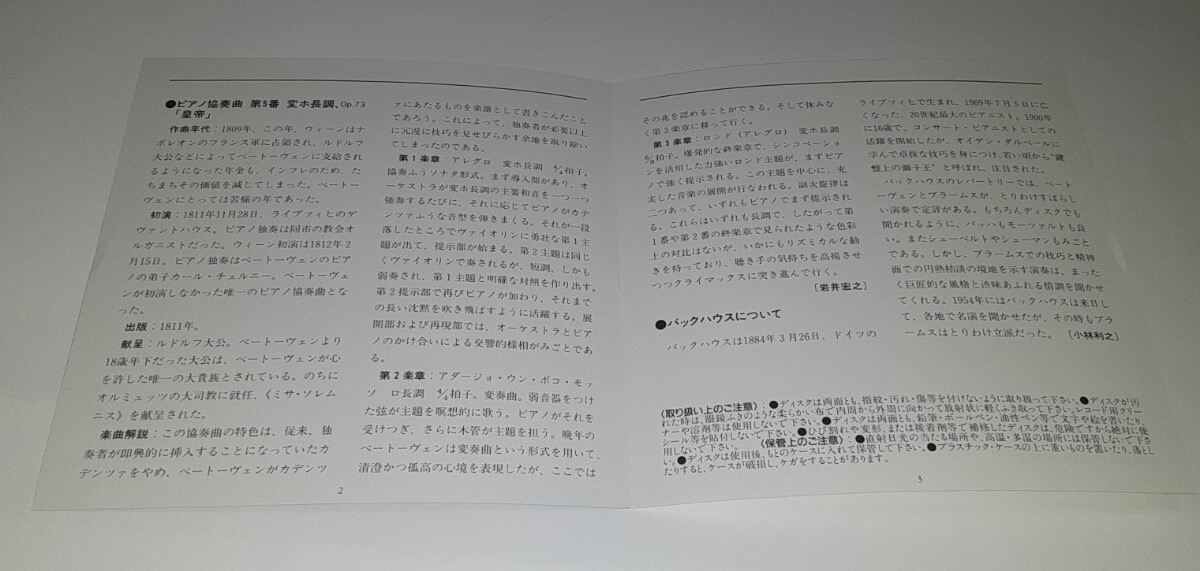 ●ピアノ協奏曲 第5番 変ホ長調、Op.73
「皇帝」
作曲年代：1809年、この年、ウィーンはナ
ポレオンのフランス軍に占領され、ルドルフ
大公などによってベートーヴェンに支給され
るようになった年金も、インフレのため、た
ちまちその価値を減じてしまった。ベートー
ヴェンにとっては苦痛の年であった。
初演：1811年11月28日、ライプツィヒのゲ
ヴァントハウス。ピアノ独奏は同市の教会オ
ルガニストだった。ウィーン初演は1812年2
月15日。ピアノ独奏はベートーヴェンのピア
ノの弟子カール・チェルニー。ベートーヴェ
ンが初演しなかった唯一のピアノ協奏曲とな
った。
出版：1811年。
献呈：ルドルフ大公。ベートーヴェンより
18歳年下だった大公は、ベートーヴェンが心
を許した唯一の大貴族とされている。のちに
オルミュッツの大司教に就任、《ミサ・ソレム
ニス》を献呈された。
楽曲解説：この協奏曲の特色は、従来、独
奏者が即興的に挿入することになっていたカ
デンツァをやめ、ベートーヴェンがカデンツ
ァにあたるものを楽譜として書きこんだこと
であろう。これによって、独奏者が必要以上
に冗漫に技巧を見せびらかす余地を取り除い
てしまったのである。
第1楽章：アレグロ 変ホ長調 4/4拍子。
協奏ふうソナタ形式。まず導入部があり、オ
ーケストラが変ホ長調の主要和音を一つ一つ
強奏するたびに、それに応じてピアノがカデ
ンツァふうな音型を弾きまくる。それが一段
落したところでヴァイオリンに勇壮な第1主
題が出て、提示部が始まる。第2主題は同じ
くヴァイオリンで奏されるが、短調、しかも
弱奏され、第1主題と明確な対照を作り出す。
第2提示部で再びピアノが加わり、それまで
の長い沈黙を吹き飛ばすように活躍する。展
開部および再現部では、オーケストラとピア
ノのかけ合いによる交響的様相がみごとであ
る。
第2楽章：アダージョ・ウン・ポコ・モッ
ソ ロ長調 4/4拍子。変奏曲。弱音器をつけ
た弦が主題を瞑想的に歌う。ピアノがそれを
受けつぎ、さらに木管が主題を担う。晩年の
ベートーヴェンは変奏曲という形式を用いて、
清澄かつ孤高の心境を表現したが、ここでは
2
その兆を認めることができる。そして休みな
く第3楽章に移って行く。
第3楽章：ロンド（アレグロ） 変ホ長調
6/8拍子。爆発的な終楽章で、シンコペーショ
ンを活用した力強いロンド主題が、まずピア
ノで強く提示される。この主題を中心に、充
実した音楽の展開が行なわれる。副次旋律は
二つあって、いずれもピアノでまず提示され
る。これらはいずれも長調で、したがって第
1番や第2番の終楽章で見られたような色彩
上の対比はないが、いかにもリズミカルな動
きを持っており、聴き手の気持ちを高揚させ
つつクライマックスに突き進んで行く。
〔岩井宏之〕
●バックハウスについて
バックハウスは1884年3月26日、ドイツの
ライプツィヒで生まれ、1969年7月5日に亡
くなった、20世紀最大のピアニスト。1900年
に16歳で、コンサート・ピアニストとしての
活躍を開始したが、オイゲン・ダルベールに
学んで卓抜な技巧を身につけ、若い頃から"鍵
盤上の獅子王"と呼ばれ、注目された。
バックハウスのレパートリーでは、ベート
ーヴェンとブラームスが、とりわけすばらし
い演奏で定評がある。もちろんディスクでも
聞かれるように、バッハもモーツァルトも良
い。またシューベルトやシューマンもみごと
である。しかし、ブラームスでの技巧と精神
面での円熟枯淡の境地を示す演奏は、まった
く巨匠的な風格と渋味あふれる情調を聞かせ
てくれる。1954年にはバックハウスは来日し
て、各地で名演を聞かせたが、その時もブラ
ームスはとりわけ立派だった。〔小林利之〕
〈取り扱い上のご注意〉：●ディスクは両面とも、指紋・汚れ・傷等を付けないように取り扱って下さい。●ディスクが汚
れた時は、眼鏡ふきのような柔らかい布で内周から外周に向かって放射状に軽くふき取って下さい。レコード用クリー
ナーや溶剤等は使用しないで下さい。●ディスクは両面とも、鉛筆・ボールペン・油性ペン等で文字や絵を書いたり、
シール等を貼付しないで下さい。●ひび割れや変形、または接着剤等で補修したディスクは、危険ですから絶対に使
用しないで下さい。〈保管上のご注意〉：●直射日光の当たる場所や、高温・多湿の場所には保管しないで下さ
い。●ディスクは使用後、もとのケースに入れて保管して下さい。●プラスチック・ケースの上に重いものを置いたり、落とし
たりすると、ケースが破損し、ケガをすることがあります。
3